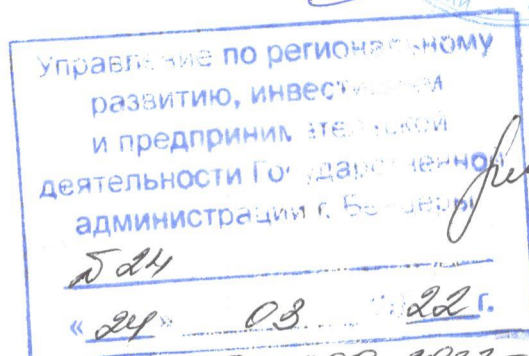 Управление по региональному
развитию, инвестициям
и предпринимательской
деятельности Государственной
администрации г. Бендеры
№ 24
« 24 » 03 2022 г.